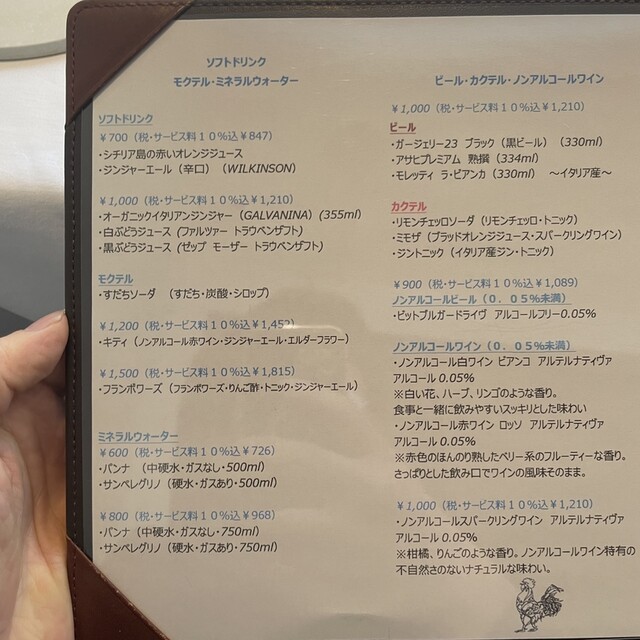 ソフトドリンク
モクテル・ミネラルウォーター
ソフトドリンク
￥700（税・サービス料１０％込￥847）
・シチリア島の赤いオレンジジュース
・ジンジャーエール（辛口）（WILKINSON）
￥1,000（税・サービス料１０％込￥1,210）
・オーガニックイタリアンジンジャー（GALVANINA）(355ml）
・白ぶどうジュース (ファルツァー トラウベンザフト)
・黒ぶどうジュース (ゼップ モーザー トラウベンザフト)
モクテル
・すだちソーダ （すだち・炭酸・シロップ）
￥1,200（税・サービス料１０％込￥1,452）
・キティ（ノンアルコール赤ワイン・ジンジャーエール・エルダーフラワー）
￥1,500（税・サービス料１０％込￥1,815）
・フランボワーズ（フランボワーズ・りんご酢・トニック・ジンジャーエール）
ミネラルウォーター
￥600（税・サービス料１０％込￥726）
・パンナ （中硬水・ガスなし・500ml）
・サンペレグリノ（硬水・ガスあり・500ml）
￥800（税・サービス料１０％込￥968）
・パンナ（中硬水・ガスなし・750ml）
・サンペレグリノ（硬水・ガスあり・750ml）
ビール・カクテル・ノンアルコールワイン
￥1,000（税・サービス料１０％込￥1,210）
ビール
・ガージェリー23 ブラック（黒ビール）（330ml）
・アサヒプレミアム 熟撰（334ml）
・モレッティ ラ・ビアンカ（330ml） ～イタリア産～
カクテル
・リモンチェッロソーダ（リモンチェッロ・トニック）
・ミモザ（ブラッドオレンジジュース・スパークリングワイン）
・ジントニック（イタリア産ジン・トニック）
￥900（税・サービス料１０％込￥1,089）
ノンアルコールビール（０．０５％未満）
・ビットブルガードライヴ アルコールフリー0.05%
ノンアルコールワイン（０．０５％未満）
・ノンアルコール白ワイン ビアンコ アルテルナティヴァ
アルコール 0.05%
※白い花、ハーブ、リンゴのような香り。
食事と一緒に飲みやすいスッキリとした味わい
・ノンアルコール赤ワイン ロッソ アルテルナティヴァ
アルコール 0.05%
※赤色のほんのり熟したベリー系のフルーティーな香り。
さっぱりとした飲み口でワインの風味そのまま。
￥1,000（税・サービス料１０％込￥1,210）
・ノンアルコールスパークリングワイン アルテルナティヴァ
アルコール 0.05%
※柑橘、りんごのような香り。ノンアルコールワイン特有の
不自然さのないナチュラルな味わい。